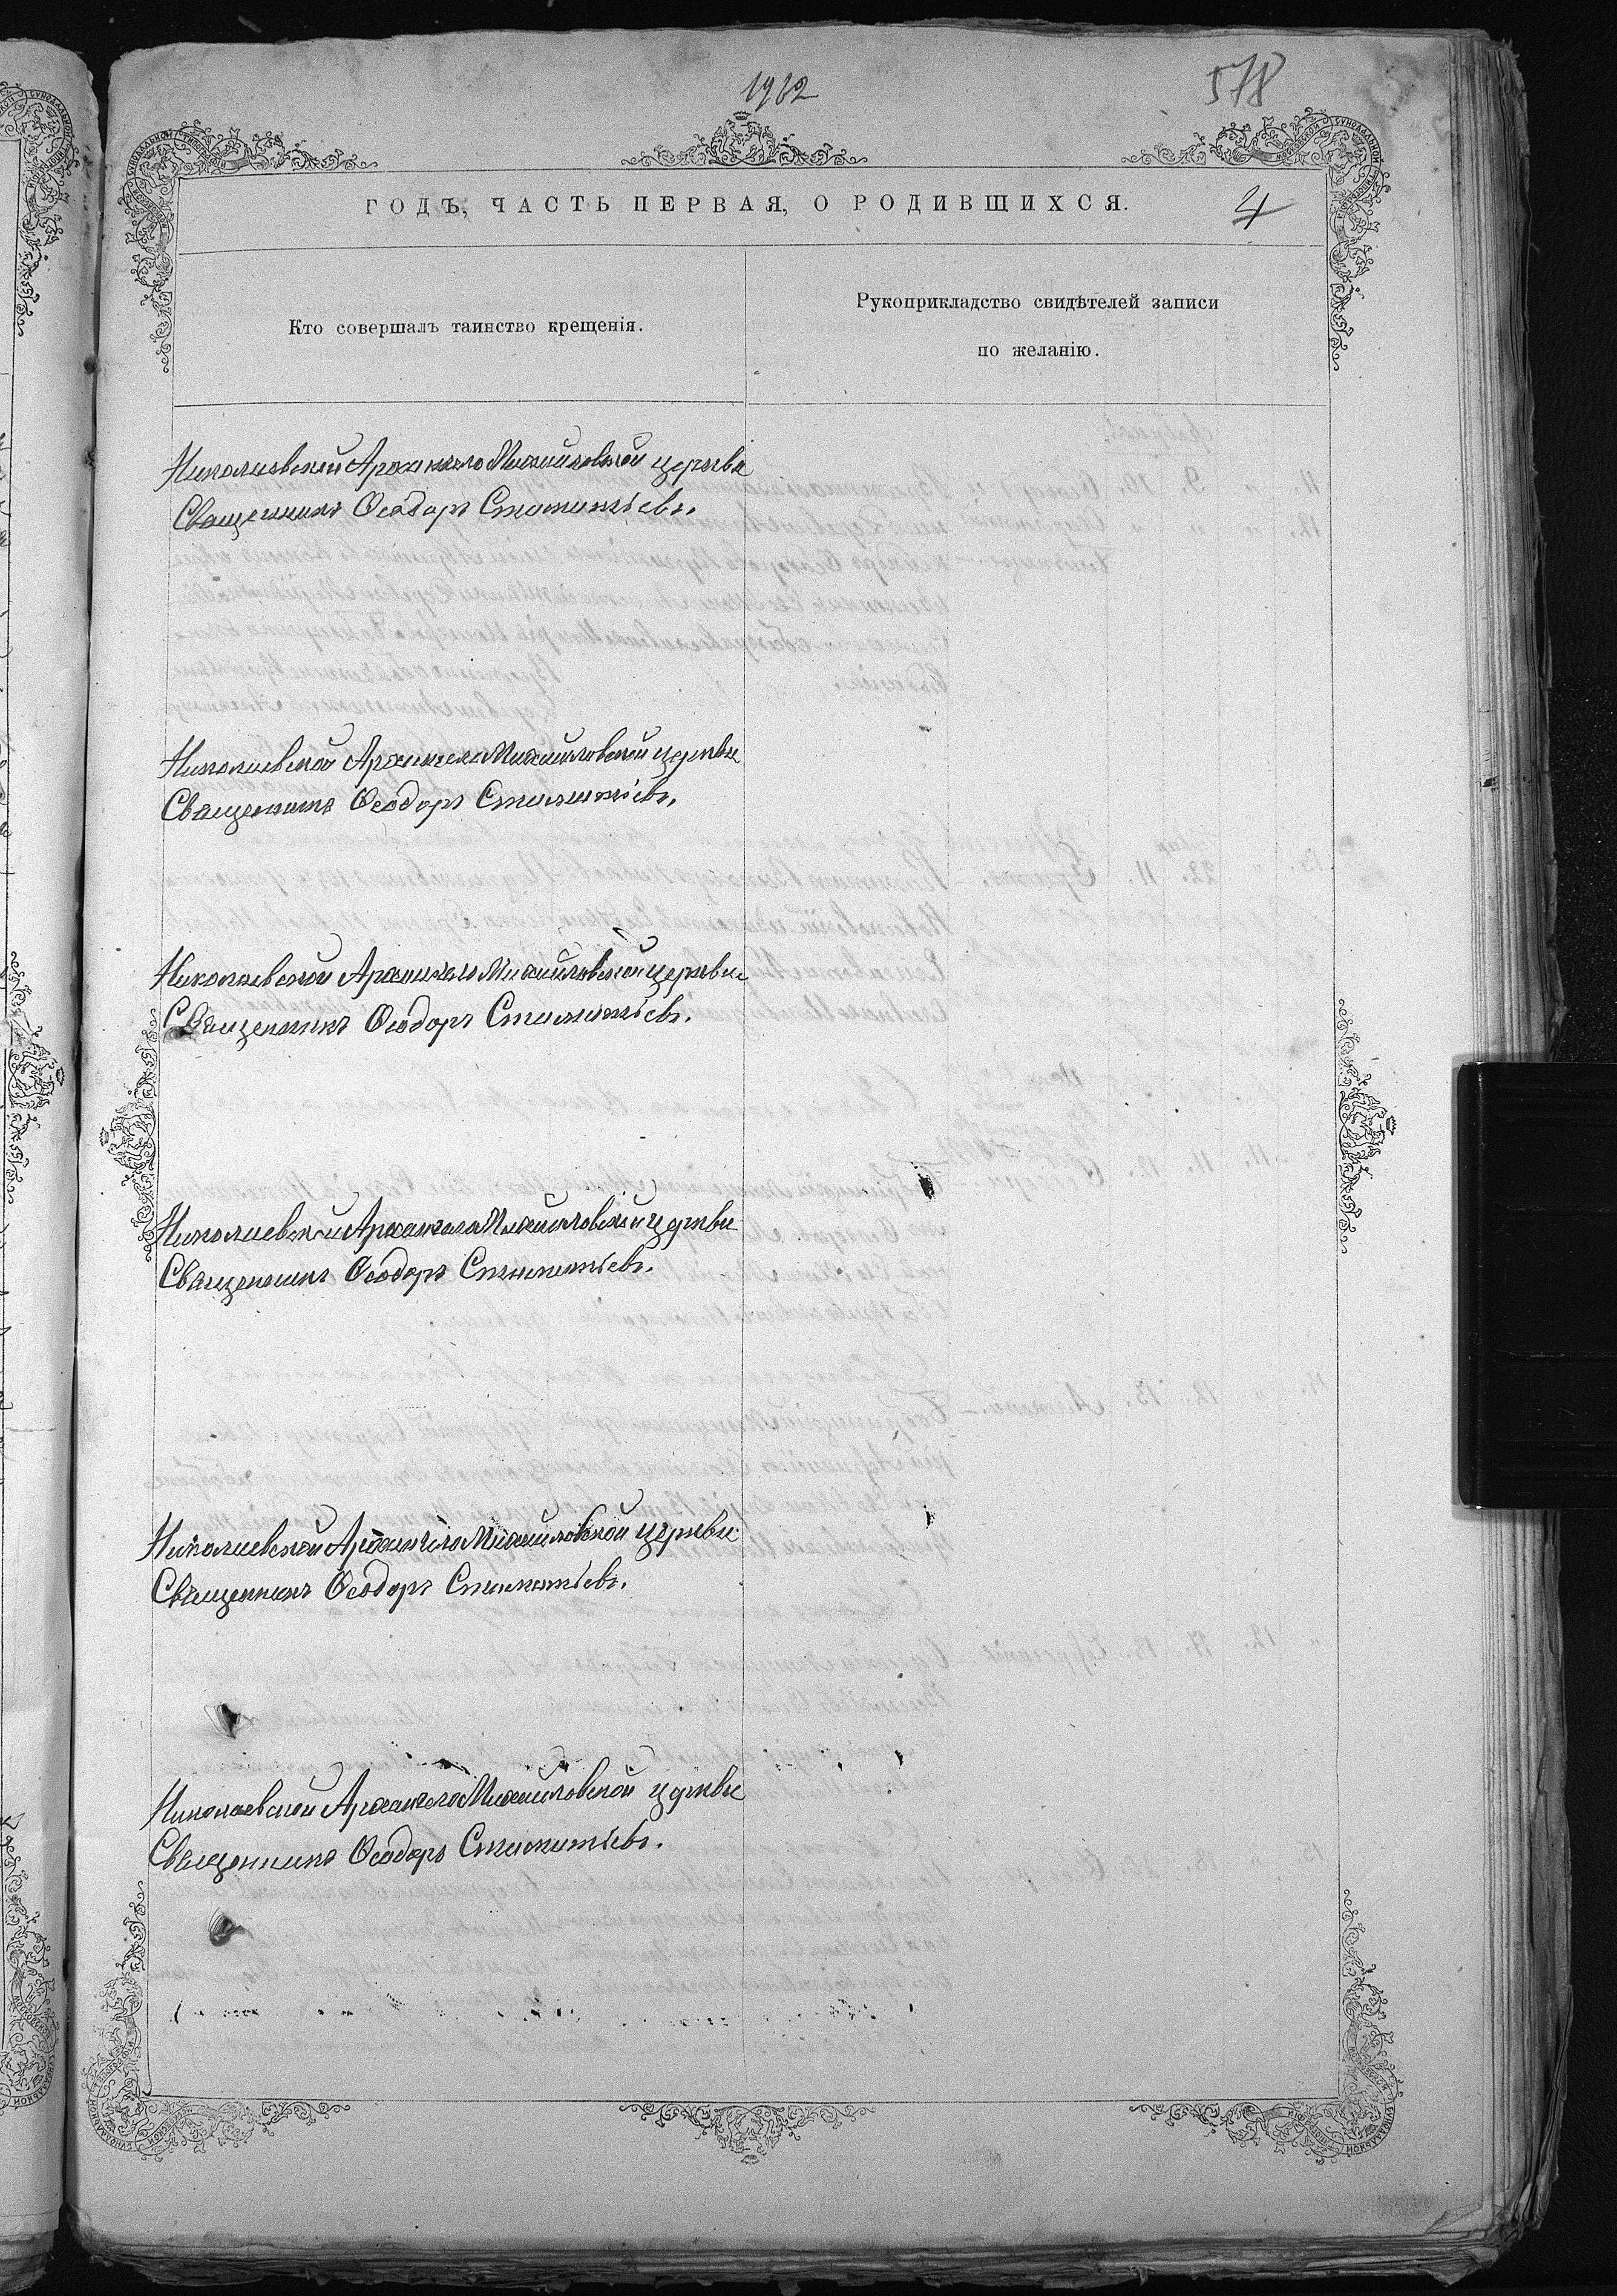 1912
578
ГОДЪ, ЧАСТЬ ПЕРВАЯ, О РОДИВШИХСЯ.
4
Кто совершалъ таинство крещенія.
Рукоприкладство свидѣтелей записи
по желанію.
Николаевской Архангело Михайловской церкви
Священникъ Ѳеодоръ
Николаевской Архангело Михайловской церкви
Священникъ Ѳеодоръ
Николаевской Архангело Михайловской церкви
Священникъ Ѳеодоръ
Николаевской Архангело Михайловской церкви
Священникъ Ѳеодоръ
Николаевской Архангело Михайловской церкви
Священникъ Ѳеодоръ
Николаевской Архангело Михайловской церкви
Священникъ Ѳеодоръ